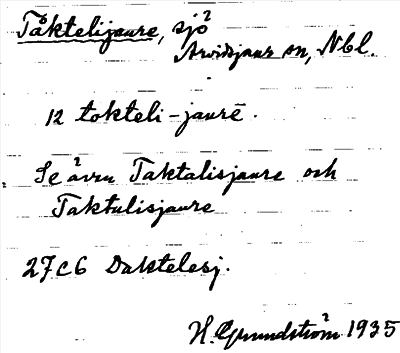 Tåktelijaure, sjö
Arvidsjaur sn, Nbl.
12 tokteli-jaurē.
Se även Taktalisjaure och
Taktulisjaure
27c6 Daktelesj.
H. Grundström 1935